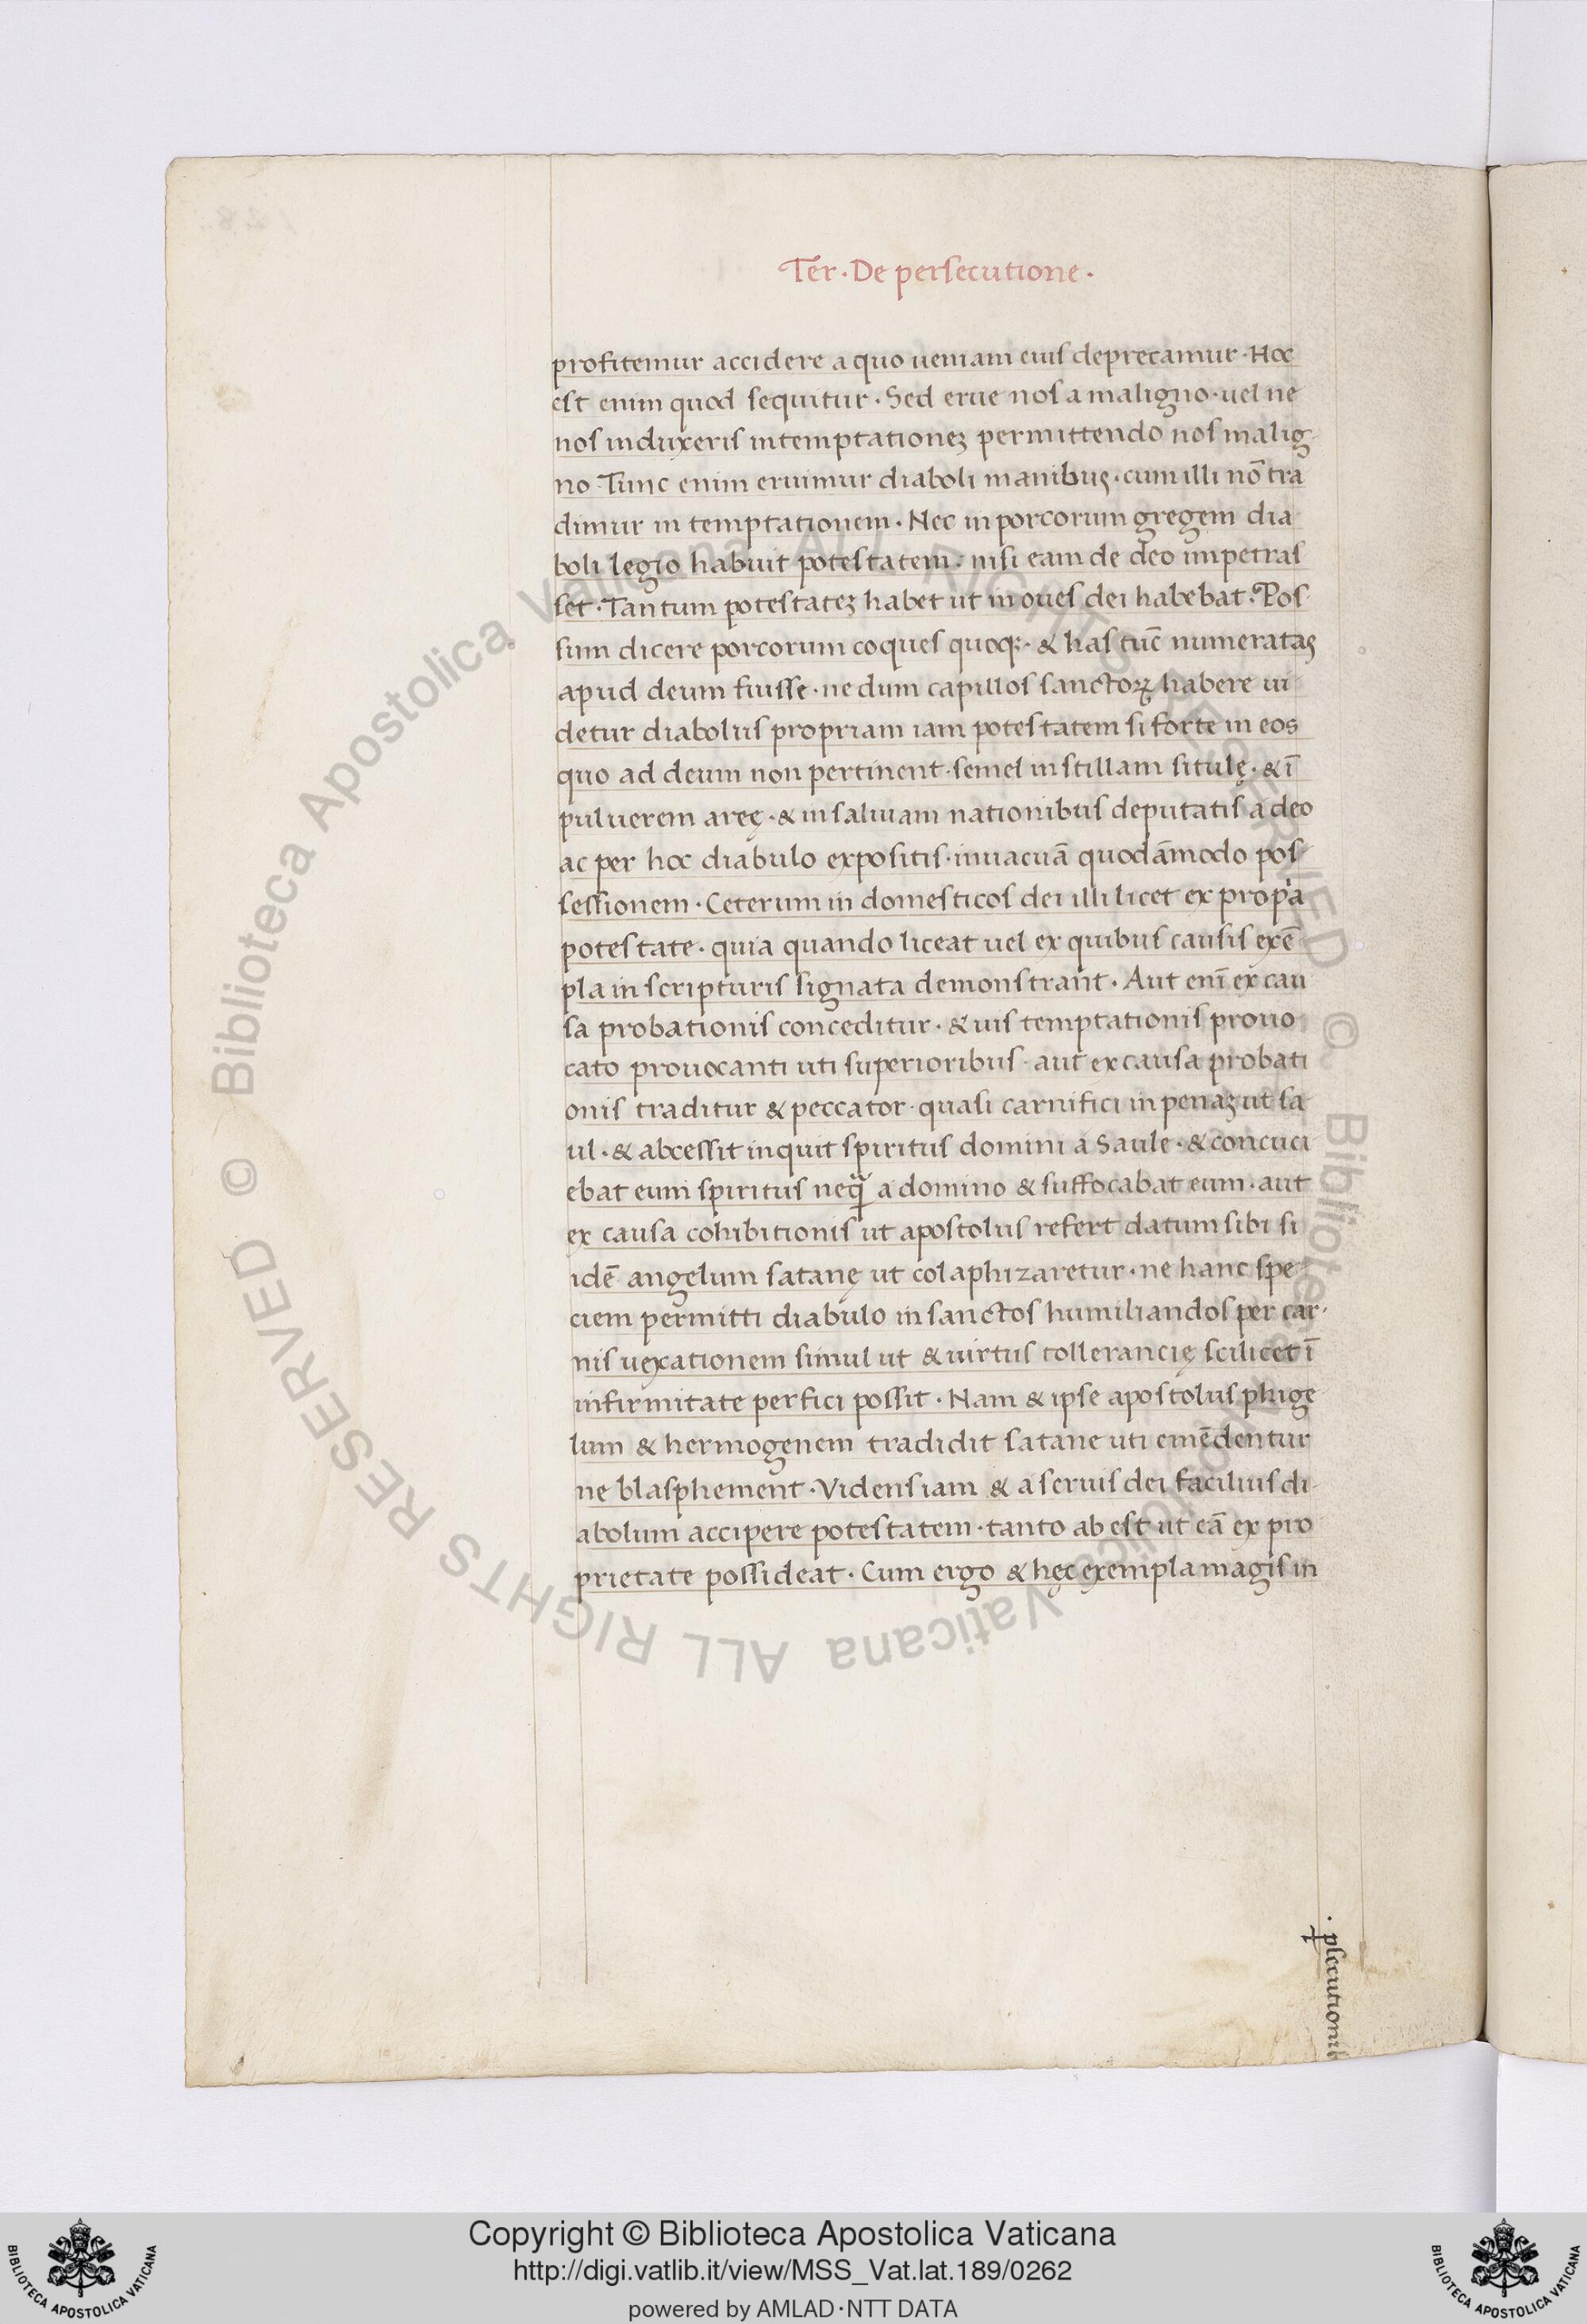 Ter · De persecutione ·
profitemur accidere a quo ueniam eius deprecamur · Hoc
est enim quod sequitur · Sed erue nos a maligno · uel ne
nos induxeris in temptationeȝ permittendo nos malig
no · Tunc enim eruimur diaboli manibus · cum illi nō tra
dimur in temptationem · Nec in porcorum gregem dia
boli legio habuit potestatem · nisi eam de deo impetras
set · Tantum potestateȝ habet ut in oues dei habebat · Pos
sum dicere porcorum coques quoqȝ · & has tūc numeratas
apud deum fuisse · ne dum capillos sanctoꝝ habere ui
detur diabolus propriam iam potestatem si forte in eos
quo ad deum non pertinent · semel in stillam situlę · & ī
puluerem areę · & in saliuam nationibus deputatis a deo
ac per hoc diabulo expositis · in uacuā quodāmodo pos
sessionem · Ceterum in domesticos dei illi licet ex propͥa
potestate · quia quando liceat uel ex quibus causis exē
pla in scripturis signata demonstrant · Aut enī ex cau
sa probationis conceditur · & uis temptationis prouo
cato prouocanti uti superioribus · aut ex causa probati
onis traditur & peccator · quasi carnifici in penaȝ ut sa
ul · & abcessit inquit spiritus domini a Saule · & concuci
ebat eum spiritus neqͣ̃ a domino & suffocabat eum · aut
ex causa cohibitionis ut apostolus refert datum sibi si
idē angelum satanę ut colaphizaretur · ne hanc spe
ciem permitti diabulo in sanctos humiliandos per car
nis uexationem simul ut & uirtus tollerancię scilicet ī
infirmitate perfici possit · Nam & ipse apostolus phige
lum & hermogenem tradidit satane uti emēdentur
ne blasphement · Vidensiam & a seruis dei facilius di
abolum accipere potestatem · tanto ab est ut eā ex pro
prietate possideat · Cum ergo & hęc exempla magis in
· ꝑsecutionib
© Biblioteca Apostolica Vaticana ALL RIGHTS RESERVED
© Biblioteca Apostolica Vaticana ALL RIGHTS RESERVED
Copyright © Biblioteca Apostolica Vaticana
http://digi.vatlib.it/view/MSS_Vat.lat.189/0262
powered by AMLAD·NTT DATA
BIBLIOTECA APOSTOLICA VATICANA
BIBLIOTECA APOSTOLICA VATICANA